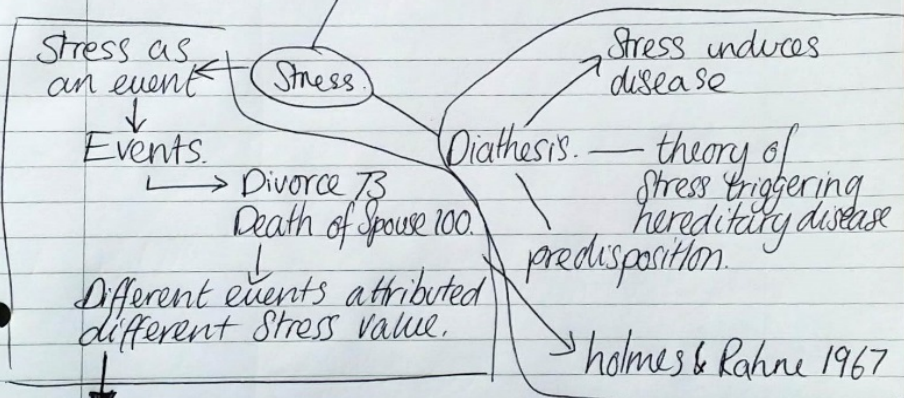 Stress as
an event
Stress.
Events.
Divorce 73
Death of Spouse 100.
Different events attributed
different Stress value.
Stress induces
disease
Diathesis. — theory of
Stress triggering
hereditary disease
predisposition.
holmes & Rahne 1967